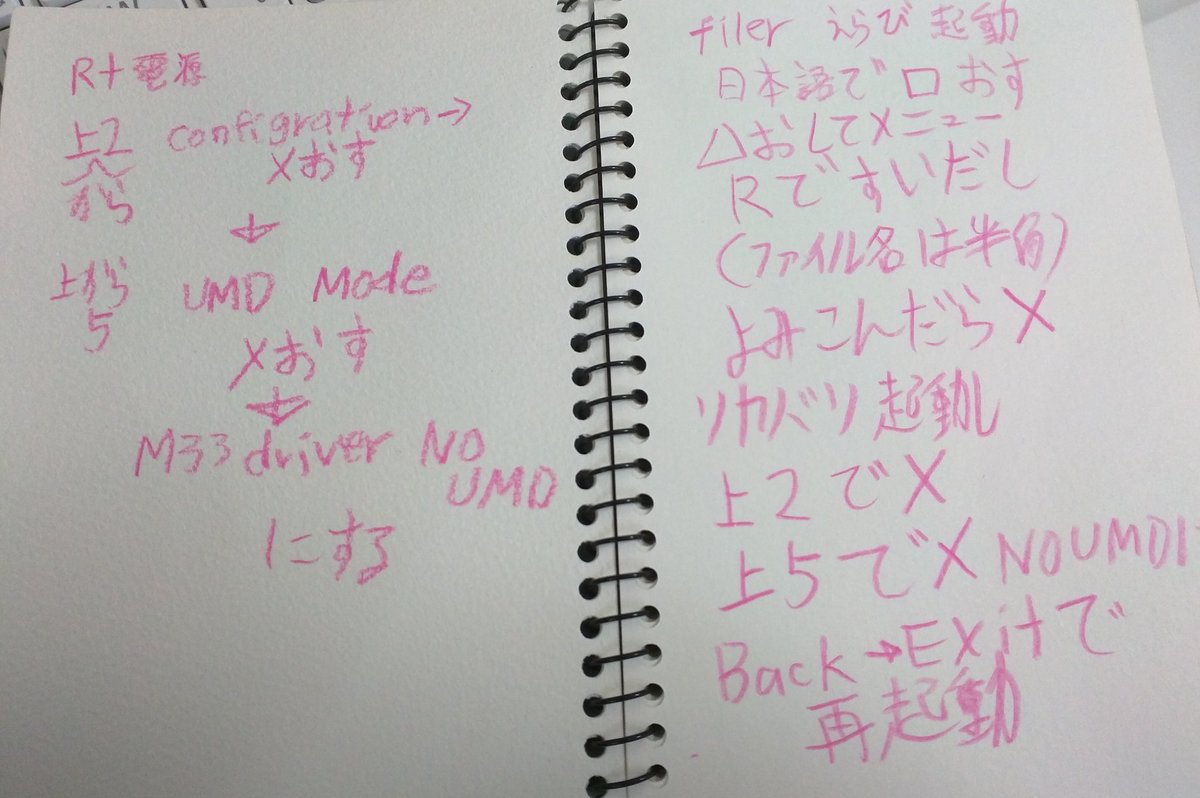 R+電源
上2から configration→
Xおす
↓
上から5 UMD Mode
Xおす
↓
M33 driver NO
UMD
1にする
filer えらび 起動
日本語で ロ おす
△おしてメニュー
Rですいだし
(ファイル名は半角)
よみこんだら X
リカバリ 起動し
上2でX
上5でX NOUMD1
Back→Exitで
再起動